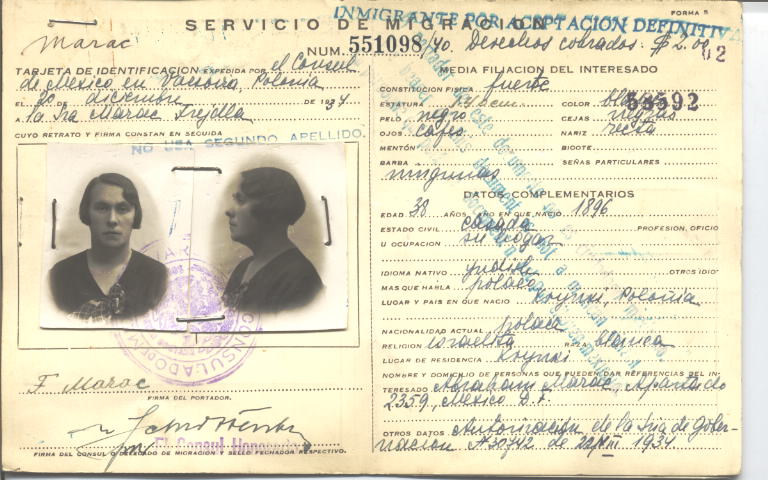 FORMA 5
SERVICIO DE MIGRACION
INMIGRANTE POR ACEPTACION DEFINITIVA
Marac
NUM. 551098/40. Derechos cobrados. $2.00
TARJETA DE IDENTIFICACION EXPEDIDA POR el Consul
de Mexico en Varsovia, Polonia
EL 20 DE diciembre DE 1934
A la Sra Marac Frejdla
CUYO RETRATO Y FIRMA CONSTAN EN SEGUIDA
NO USA SEGUNDO APELLIDO.
F Marac
FIRMA DEL PORTADOR.
El Consul Honorario
FIRMA DEL CONSUL O DELEGADO DE MIGRACION Y SELLO FECHADOR RESPECTIVO.
MEDIA FILIACION DEL INTERESADO
CONSTITUCION FISICA fuerte
ESTATURA COLOR
58592
PELO negro CEJAS negras
OJOS cafes NARIZ recta
MENTÓN BIGOTE
BARBA SEÑAS PARTICULARES
ningunas
DATOS COMPLEMENTARIOS
EDAD 38 AÑOS AÑO EN QUE NACIO 1896
ESTADO CIVIL casada PROFESION, OFICIO
U OCUPACION su hogar
IDIOMA NATIVO yndish OTROS IDIO
MAS QUE HABLA polaco
LUGAR Y PAIS EN QUE NACIO Krynki, Polonia
NACIONALIDAD ACTUAL polaca
RELIGION israelita RAZA blanca
LUGAR DE RESIDENCIA Krynki
NOMBRE Y DOMICILIO DE PERSONAS QUE PUEDEN DAR REFERENCIAS DEL IN-
TERESADO Abraham Marac, Apartado
2359, Mexico D.F.
OTROS DATOS Autorizacion de la Sria de Gober-
nacion N30742 de 1934.